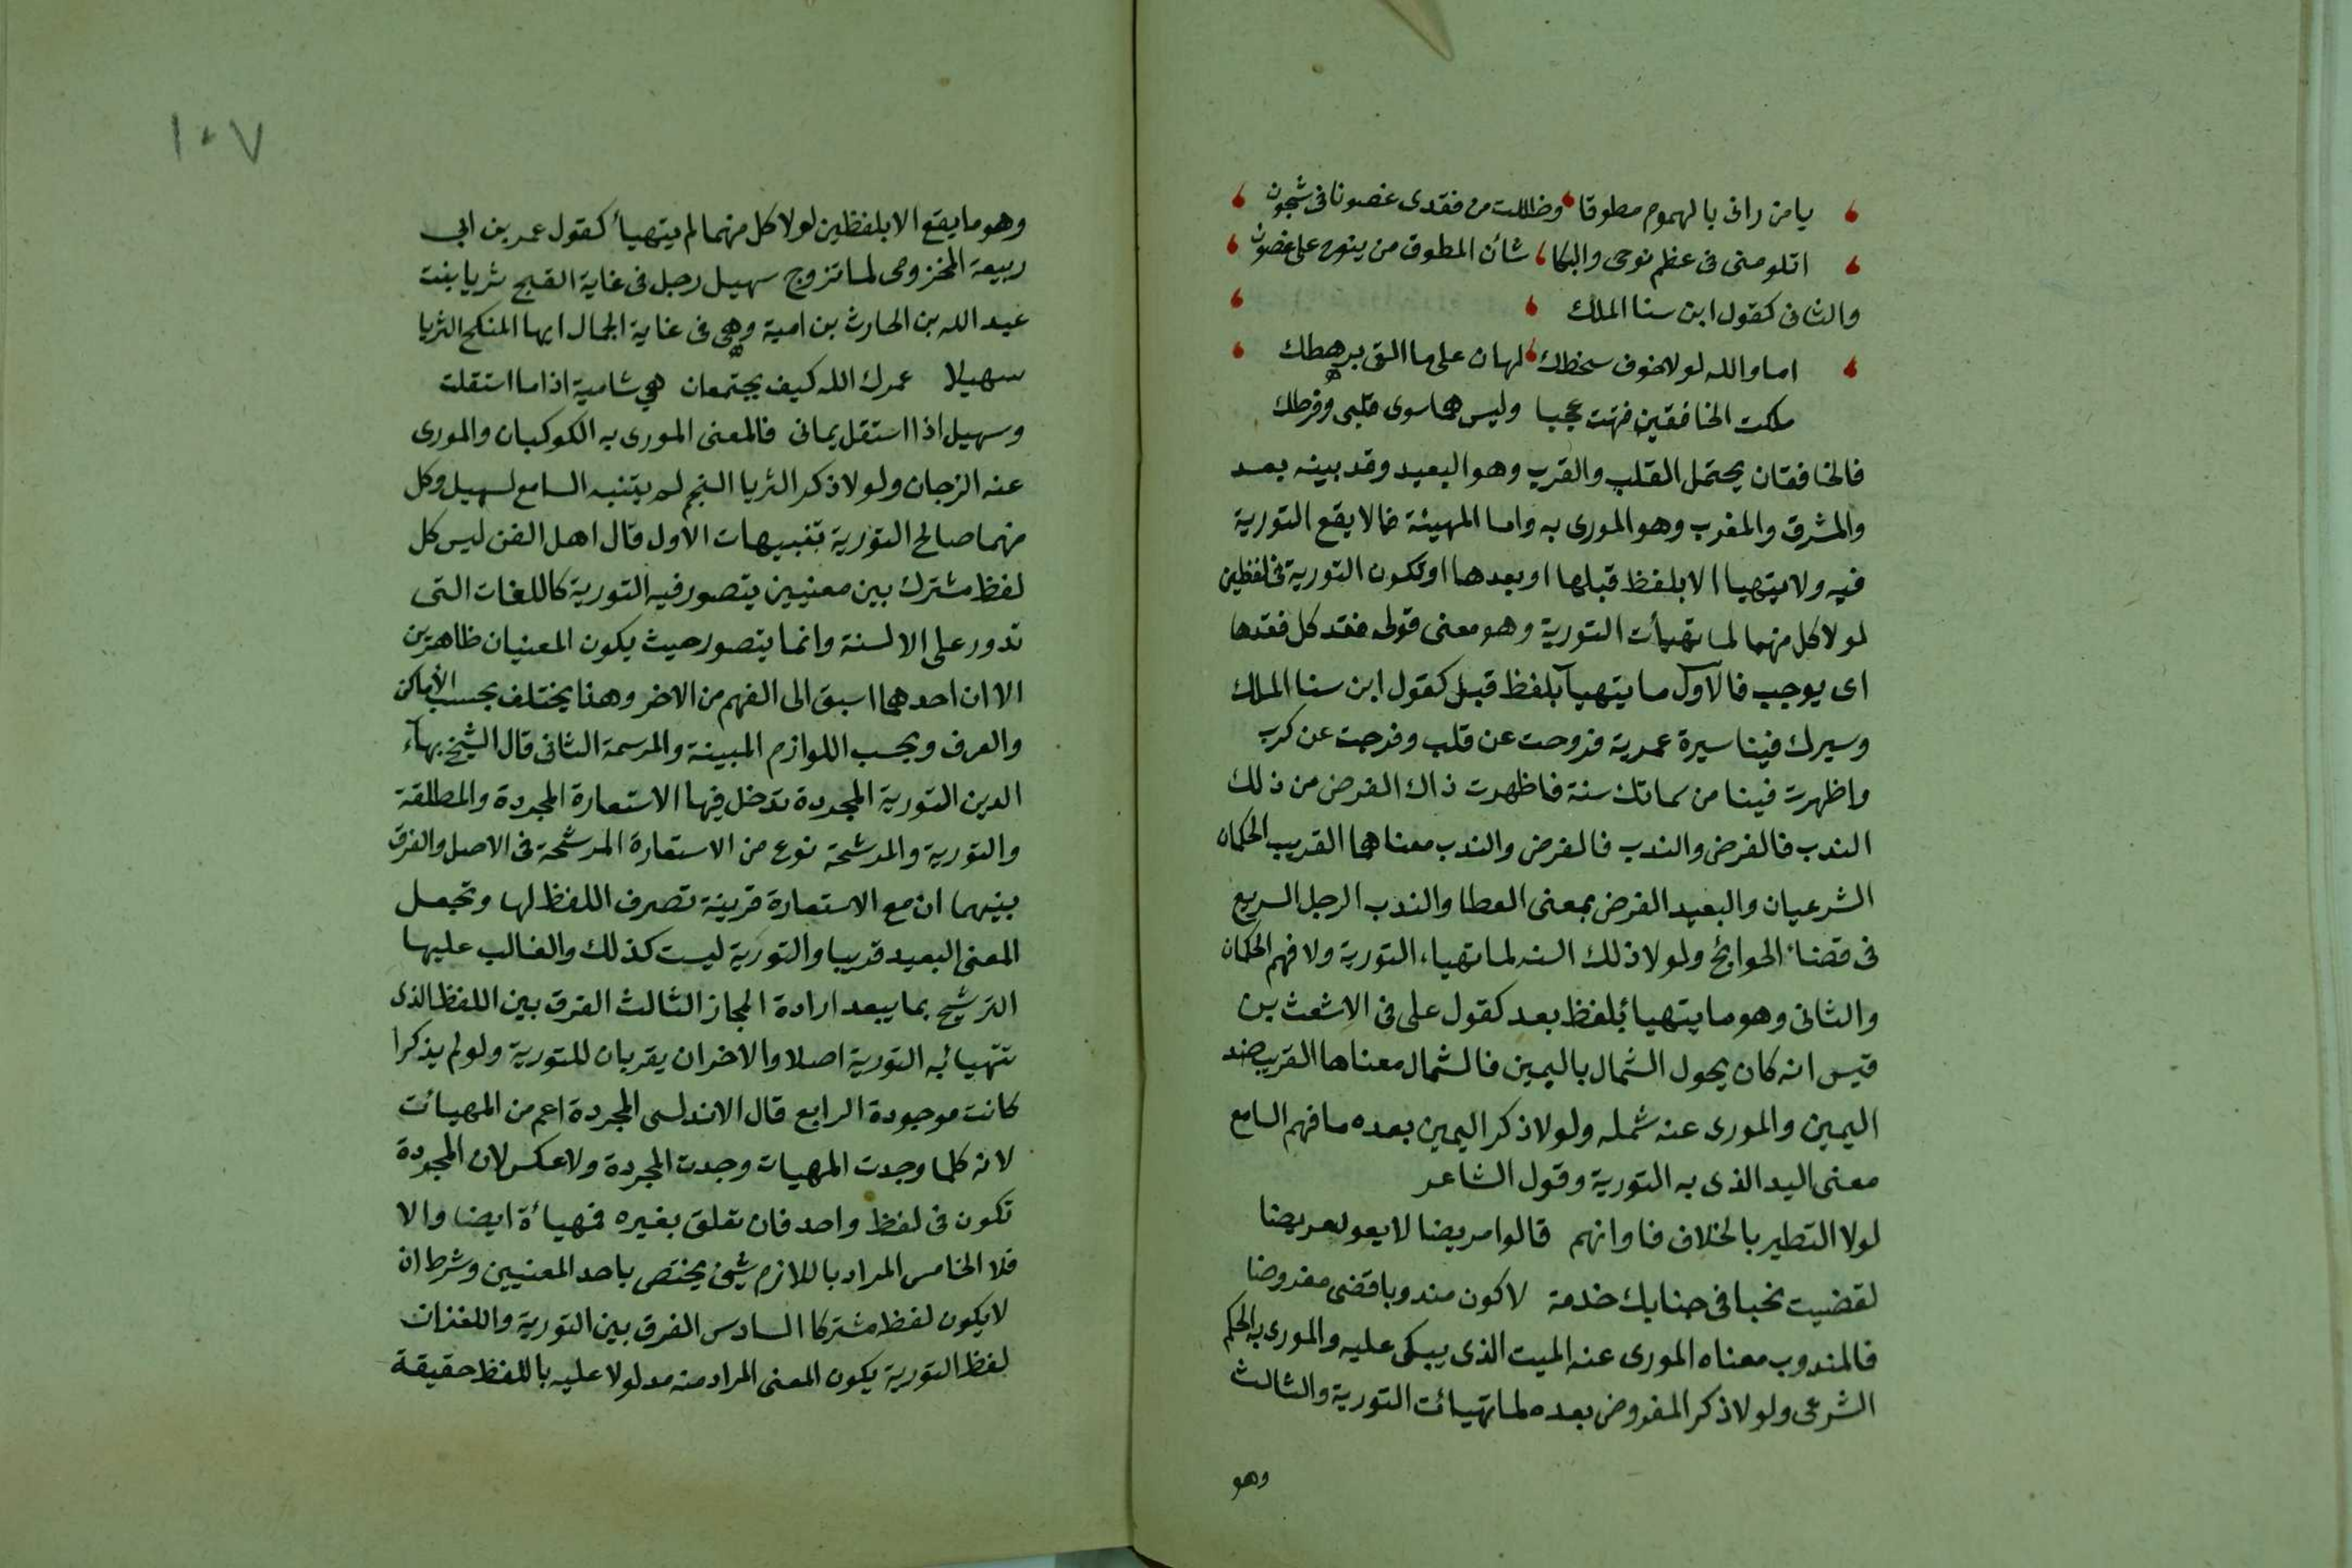 يا من رانى بالهموم مطوقا وظللت من فقدى غصونا فى شجون
اتلومنى فى عظم نوحى والبكا شأن المطوق من ينوح على غصون
والثانى كقول ابن سنا الملك
اما والله لولا خوف سخطك لهان على ما القى برهطك
ملكت الخافقين فتهت عجبا وليس هما سوى قلبى وقرطك
فالخافقان يحتمل القلب والقرب وهو البعيد وقد بينه بعد
والمشرق والمغرب وهو المورى به واما المهيئة فما لا يقع التورية
فيه ولا يتهيا الا بلفظ قبلها او بعدها او تكون التورية فى لفظين
لولا كل منهما لما تهيأت التورية وهو معنى قولى فقد كل فقدها
اى يوجب فالاول ما يتهيأ بلفظ قبل كقول ابن سنا الملك
وسيرك فينا سيرة عمرية فروحت عن قلب وفرجت عن كرب
واظهرت فينا من سماتك سنة فاظهرت ذاك الفرض من ذلك
الندب فالفرض والندب فالفرض والندب معناهما القريب الحكمان
الشرعيان والبعيد الفرض بمعنى العطا والندب الرجل السريع
فى قضاء الحوائج ولولا ذلك السنه لما تهياء التورية ولا فهم الحكمان
والثانى وهو ما يتهيأ بلفظ بعد كقول على فى الاشعث بن
قيس انه كان يحول الشمال باليمين فالشمال معناها القريب ضد
اليمين والمورى عنه شمله ولولا ذكر اليمين بعده ما فهم السامع
معنى اليد الذى به التورية وقول الشاعر
لولا التطير بالخلاف فاوانهم قالوا مريضا لا يعود مريضا
لقضيت نحبا فى جنابك خدمة لاكون مندوبا قضى مفروضا
فالمندوب معناه المورى عنه الميت الذى يبكى عليه والمورى به الحكم
الشرعى ولولا ذكر المفروض بعده لما تهيائت التورية والثالث
وهو
١٠٧
وهو ما يقع الا بلفظين لولا كل منهما لم يتهيأ كقول عمر بن ابى
ربيعة المخزومى لما تزوج سهيل رجل فى غاية القبح ثريا بنت
عبد الله بن الحارث بن امية وهى فى غاية الجمال ايها المنكح الثريا
سهيلا عمرك الله كيف يجتمعان هي شامية اذا ما استقلت
وسهيل اذا استقل يمانى فالمعنى المورى به الكوكبان والمورى
عنه الزجان ولولا ذكر الثريا النجم لم يتنبه السامع لسهيل وكل
منهما صالح التورية تنبيهات الاول قال اهل الفن ليس كل
لفظ مشترك بين معنيين يتصور فيه التورية كاللغات التى
تدور على الالسنة وانما يتصور حيث يكون المعنيان ظاهرين
الا ان احدهما اسبق الى الفهم من الاخر وهذا يختلف بحسب الأماكن
والعرف وبحسب اللوازم المبينة والمرسمة الثانى قال الشيخ بهآء
الدين التورية المجردة تدخل فيها الاستعارة المجردة والمطلقة
والتورية والمرشحة نوع من الاستعارة المرشحة فى الاصل والفرق
بينهما ان مع الاستعارة قرينة تصرف اللفظ لها وتجعل
المعنى البعيد قريبا والتورية ليست كذلك والغالب عليها
الترشيح بما يبعد ارادة المجاز الثالث الفرق بين اللفظ الذى
تتهيأ به التورية اصلا والاخران يقربان للتورية ولو لم يذكرا
كانت موجودة الرابع قال الاندلسى المجردة اعم من المهيائت
لانه كلما وجدت المهيات وجدت المجردة ولا عكس لان المجردة
تكون فى لفظ واحد فان تعلق بغيره فهيأة ايضا والا
فلا الخامس المراد باللازم شئ يختص باحد المعنيين وشرط ان
لا يكون لفظ مشتركا السادس الفرق بين التورية واللغز ان
لفظ التورية يكون المعنى المراد منه مدلولا عليه باللفظ حقيقة